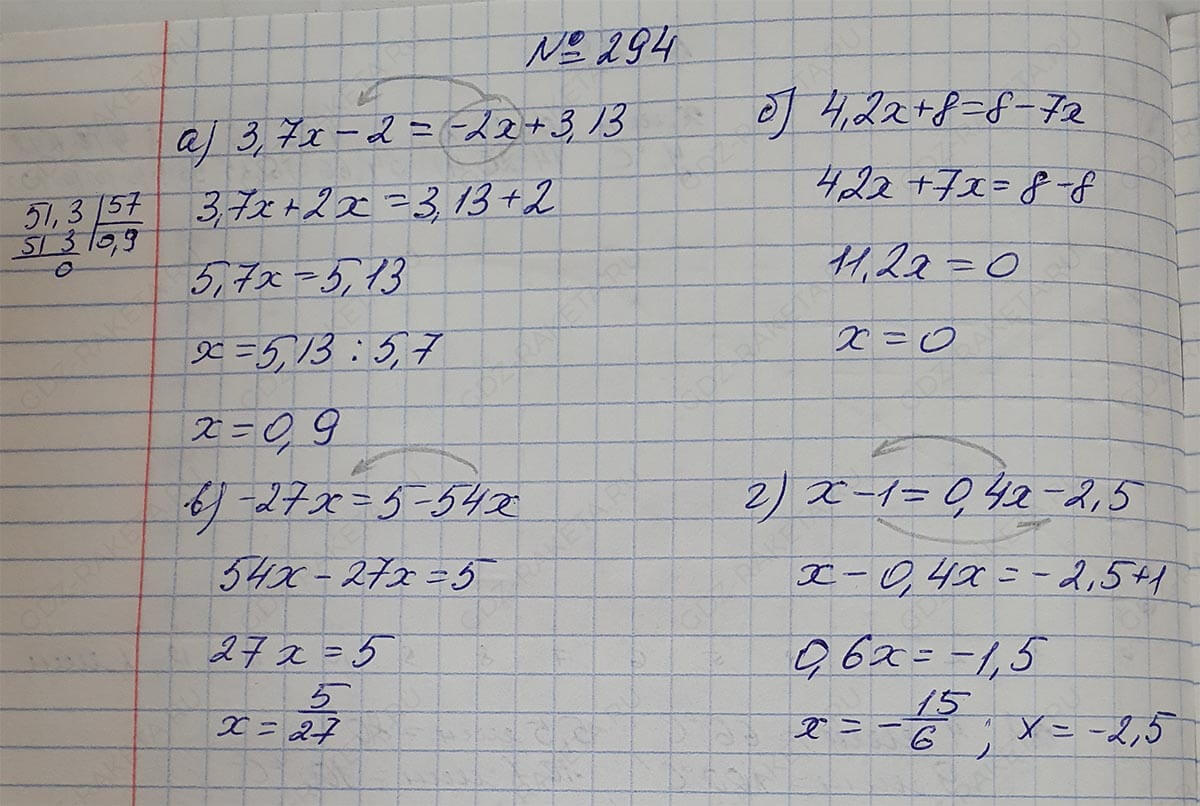 № 294
а) 3,7x - 2 = -2x + 3,13
3,7x + 2x = 3,13 + 2
51,3 | 57
51 3 | 0,9
0
5,7x = 5,13
x = 5,13 : 5,7
x = 0,9
б) 4,2x + 8 = 8 - 7x
4,2x + 7x = 8 - 8
11,2x = 0
x = 0
в) -27x = 5 - 54x
54x - 27x = 5
27x = 5
x = 5/27
г) x - 1 = 0,4x - 2,5
x - 0,4x = -2,5 + 1
0,6x = -1,5
x = -15/6 ; x = -2,5
GDZ-RAKETA.RU